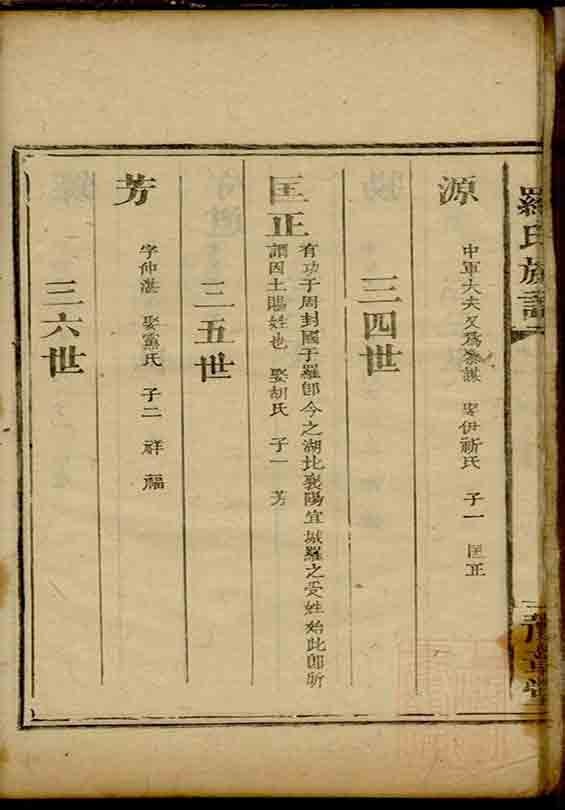 羅氏族譜
源
中軍大夫又爲參謀 娶伊祈氏 子一 匡正
三四世
匡正
有功于周封國于羅卽今之湖北襄陽宜城羅之受姓始此卽所
謂因土賜姓也 娶胡氏 子一 芳
三五世
芳
字仲湛 娶黨氏 子二 祥 福
三六世